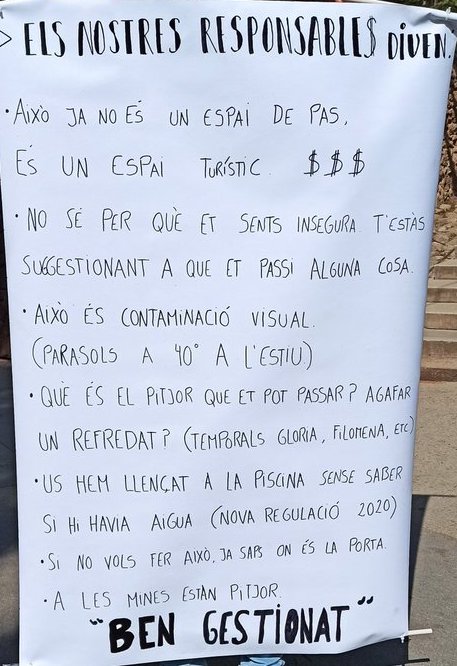 > ELS NOSTRES RESPONSABLE$ DIUEN.
· AIXÒ JA NO ÉS UN ESPAI DE PAS,
ÉS UN ESPAI TURÍSTIC. $$$
· NO SÉ PER QUÈ ET SENTS INSEGURA. T'ESTÀS
SUGGESTIONANT A QUE ET PASSI ALGUNA COSA.
· AIXÒ ÉS CONTAMINACIÓ VISUAL.
(PARASOLS A 40° A L'ESTIU)
· QUÈ ÉS EL PITJOR QUE ET POT PASSAR? AGAFAR
UN REFREDAT? (TEMPORALS GLORIA, FILOMENA, ETC)
· US HEM LLENÇAT A LA PISCINA SENSE SABER
SI HI HAVIA AIGUA (NOVA REGULACIÓ 2020)
· SI NO VOLS FER AIXÒ, JA SAPS ON ÉS LA PORTA.
· A LES MINES ESTÀN PITJOR.
"BEN GESTIONAT"